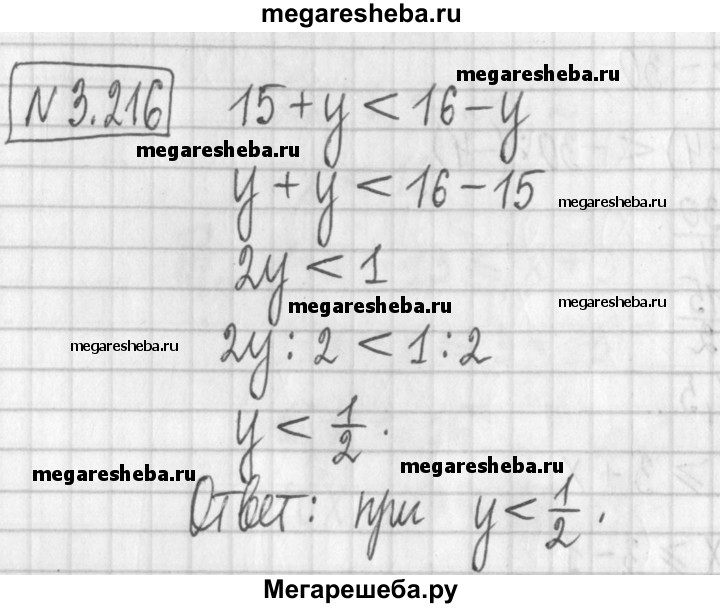 megaresheba.ru
№ 3.216
15 + y < 16 - y
megaresheba.ru
megaresheba.ru
y + y < 16 - 15
megaresheba.ru
2y < 1
megaresheba.ru
megaresheba.ru
megaresheba.ru
2y : 2 < 1 : 2
y < 1/2.
megaresheba.ru
megaresheba.ru
Ответ: при y < 1/2.
Мегарешеба.ру